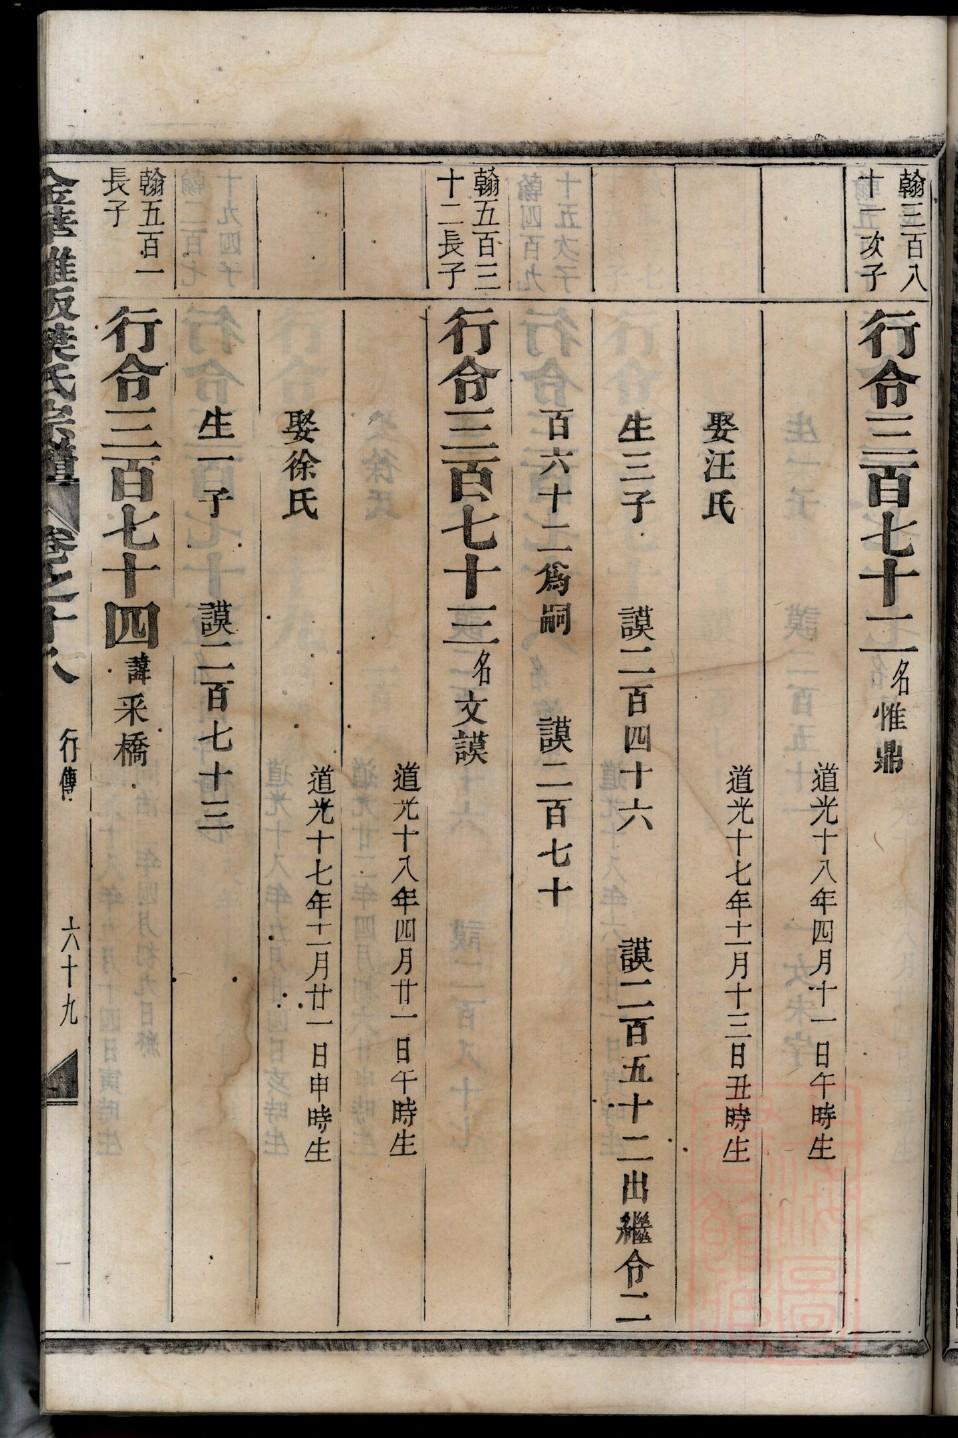 翰三百八
十一次子
行令三百七十二名惟鼎
道光十八年四月十一日午時生
娶汪氏
道光十七年十一月十三日丑時生
生三子 謨二百四十六 謨二百五十二出繼令二
百六十二爲嗣 謨二百七十
翰五百三
十二長子
行令三百七十三名文謨
道光十八年四月廿一日午時生
娶徐氏
道光十七年十二月廿一日申時生
生一子 謨二百七十三
翰五百一
長子
行令三百七十四諱采橋
葉氏宗譜 卷之十八 行傳 六十九